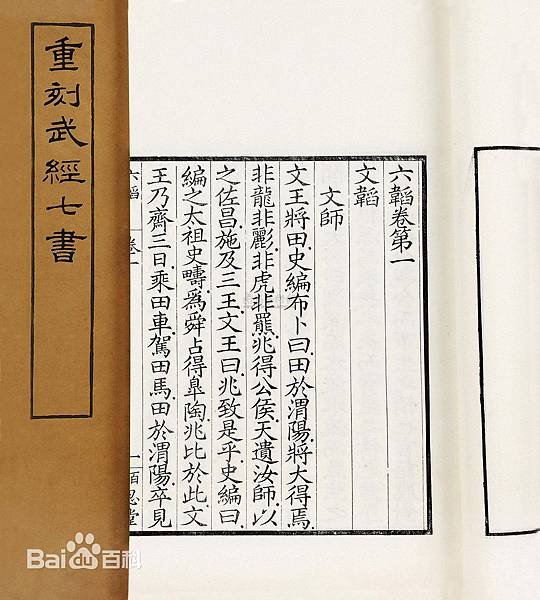 重刻武經七書
六韜卷第一
文韜
文師
文王將田史編布卜曰田於渭陽將大得焉
非龍非彲非虎非羆兆得公侯天遺汝師以
之佐昌施及三王文王曰兆致是乎史編曰
編之太祖史疇爲舜占得皐陶兆比於此文
王乃齋三日乘田車駕田馬田於渭陽卒見
六韜 卷一 一 百忍堂
Bai百科